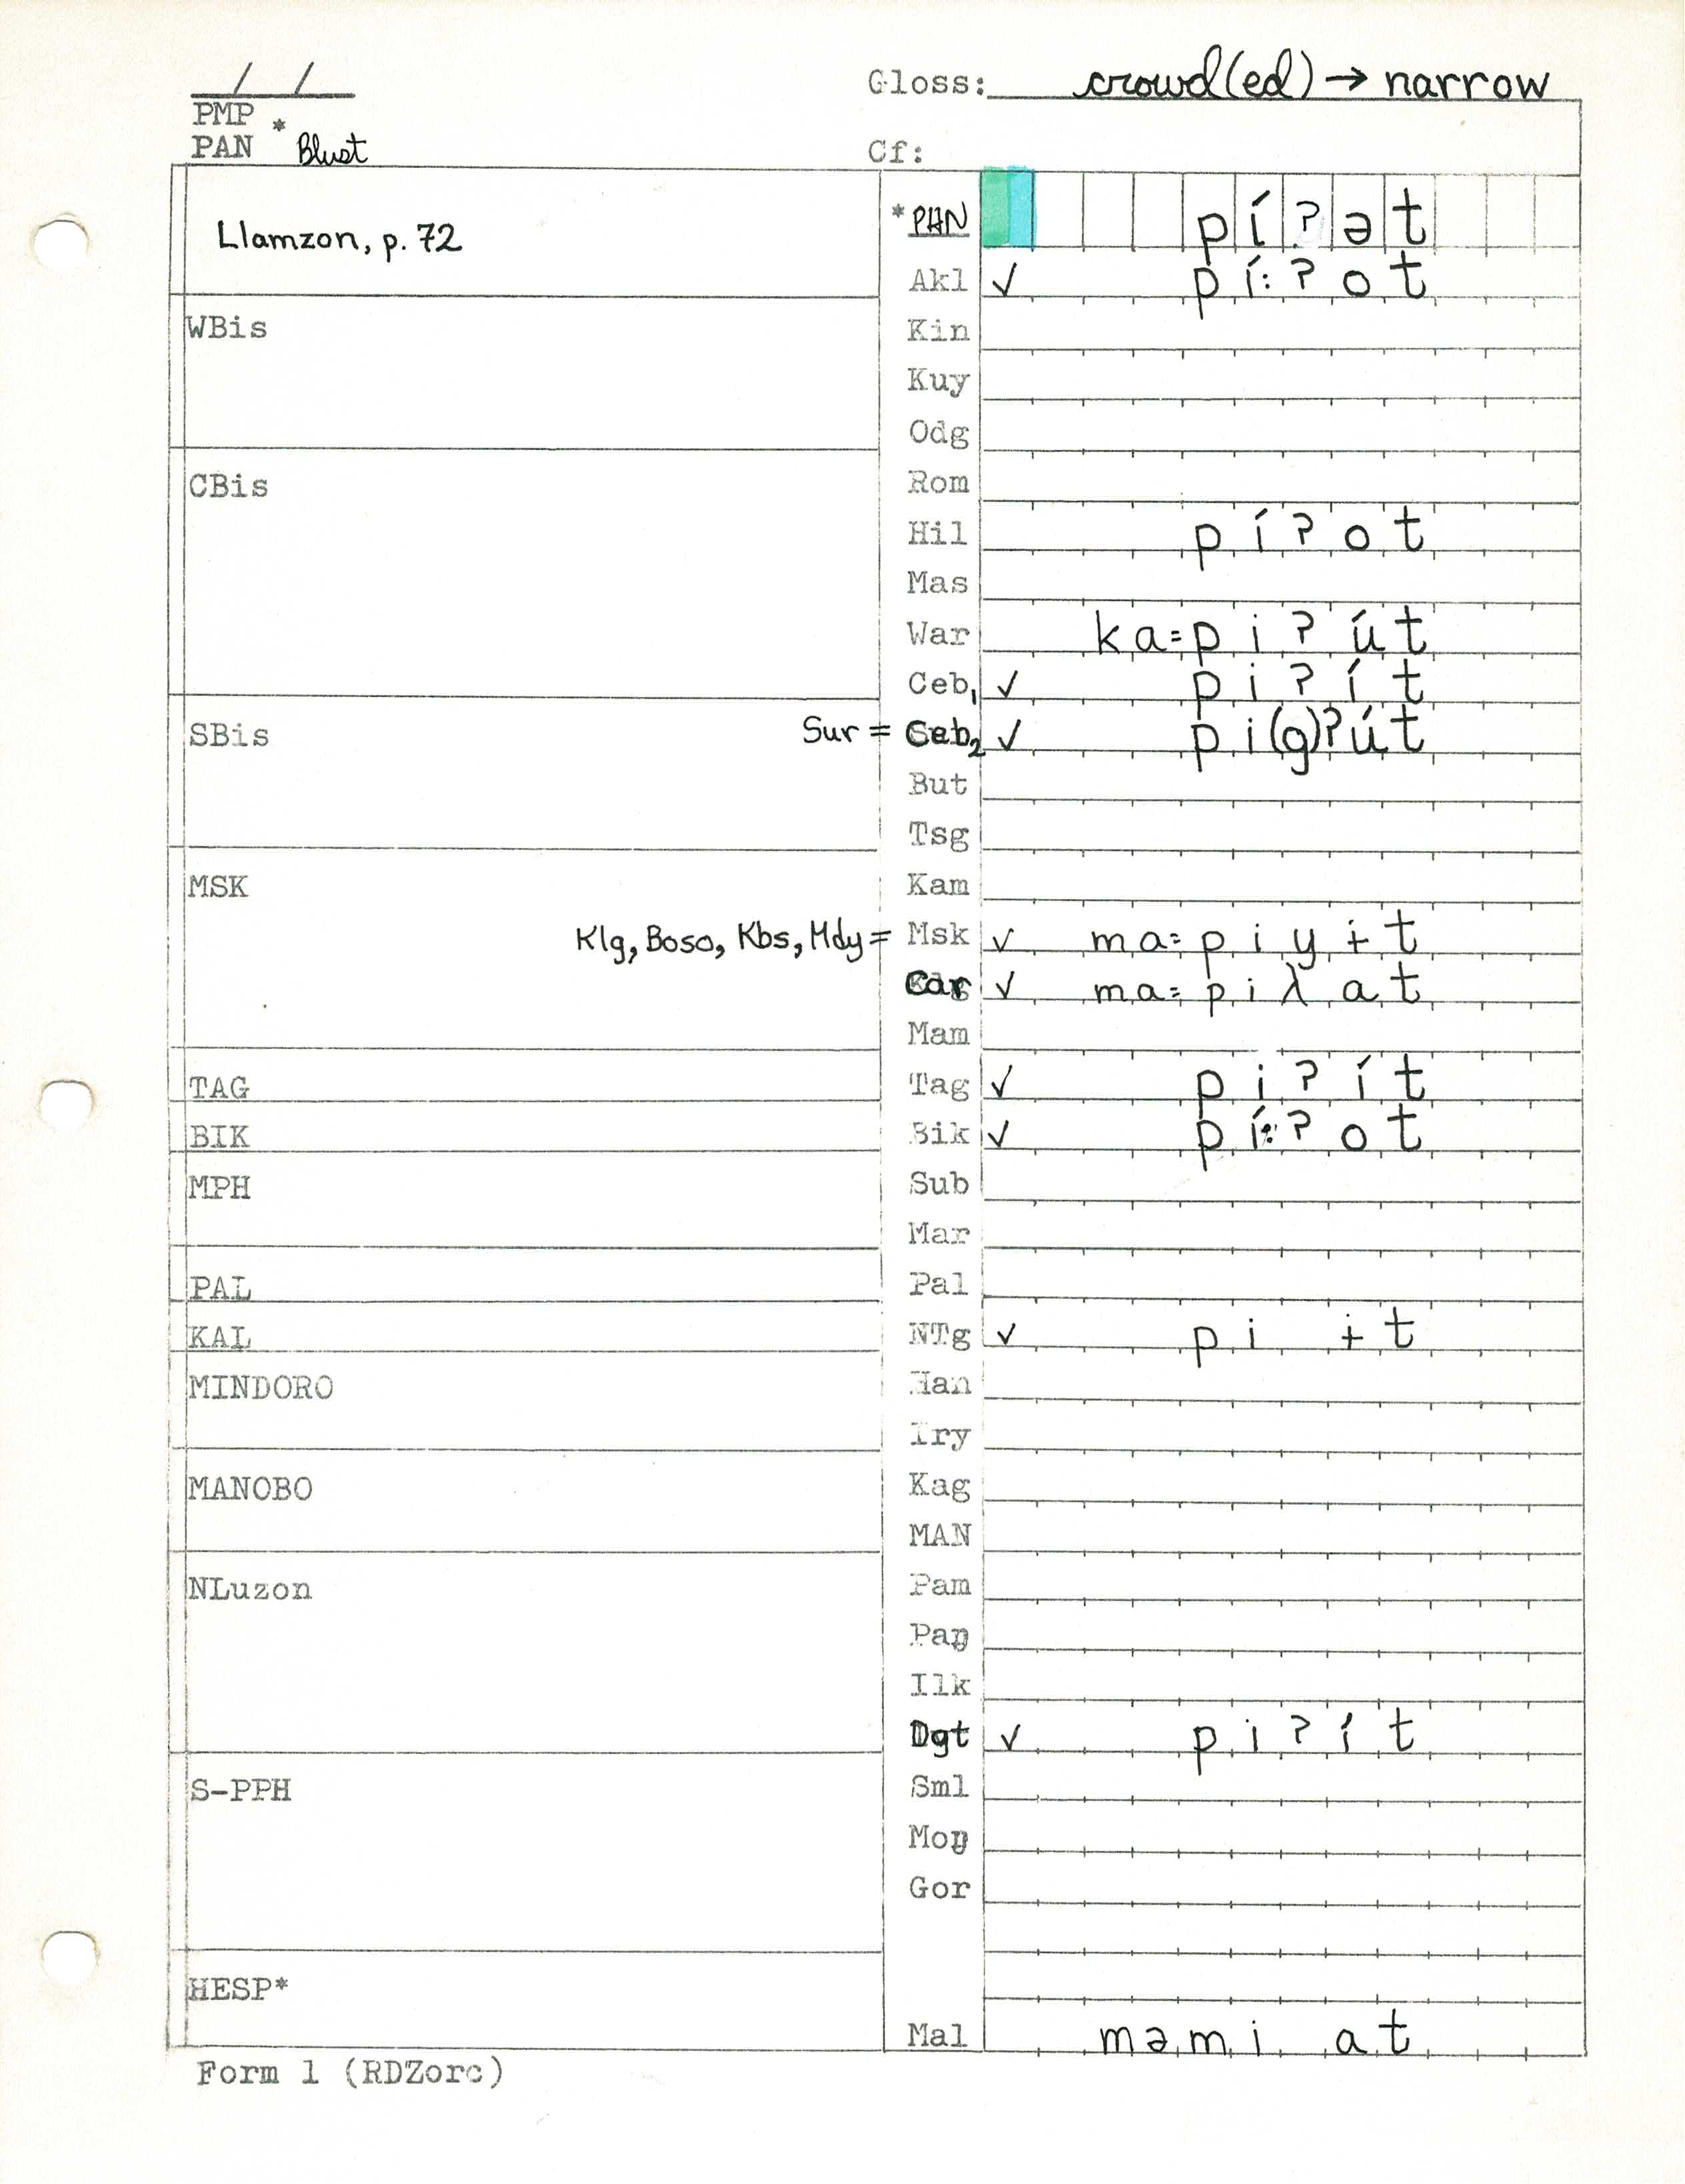 Gloss: crowd(ed) → narrow
PMP *
PAN Blust
Cf:
Llamzon, p. 72
*PHN píʔət
Akl ✓ pí:ʔot
WBis
Kin
Kuy
Odg
CBis
Rom
Hil píʔot
Mas
War ka=piʔút
Ceb₁ ✓ piʔít
SBis
Sur = Ceb₂ ✓ pi(g)ʔút
But
Tsg
MSK
Kam
Klg, Boso, Kbs, Mdy = Msk ✓ ma=piyɨt
Car ✓ ma=piλat
Mam
TAG
Tag ✓ piʔít
BIK
Bik ✓ pí:ʔot
MPH
Sub
Mar
PAL
Pal
KAL
NTg ✓ pi ɨt
MINDORO
Han
Iry
MANOBO
Kag
MAN
NLuzon
Pam
Paŋ
Ilk
Dgt ✓ piʔít
S-PPH
Sml
Moŋ
Gor
HESP*
Mal məmi at
Form 1 (RDZorc)